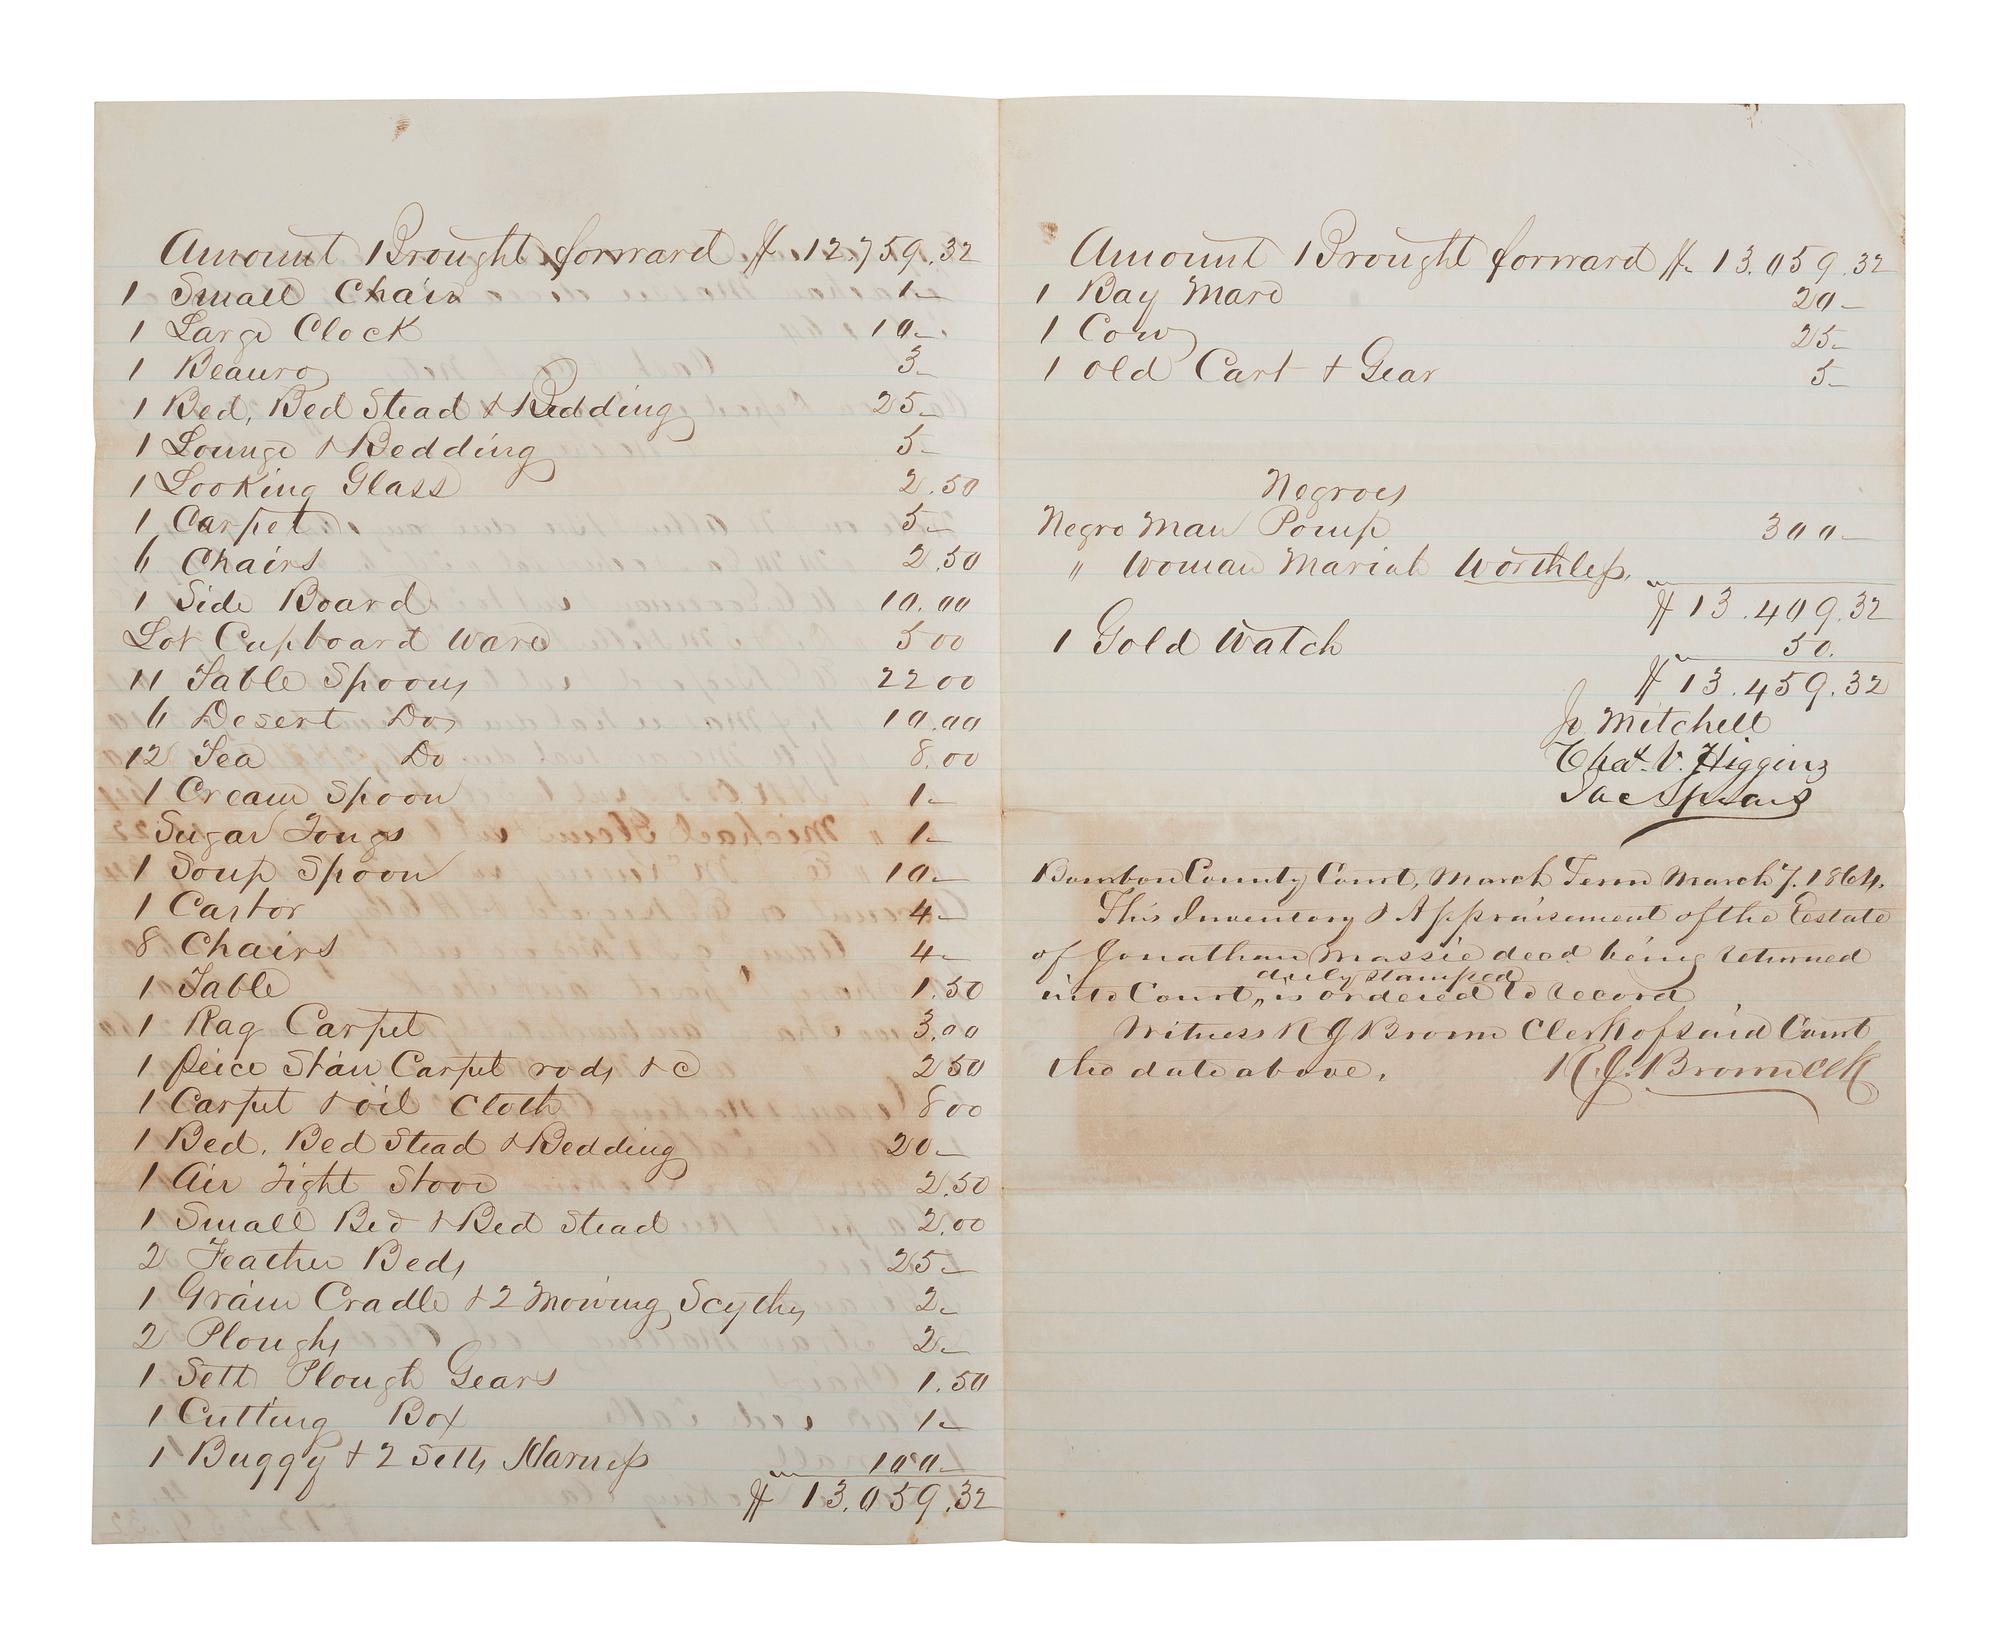 Amount Brought forward $ 12759.32
1 Small Chair 1—
1 Large Clock 10—
1 Beauro 3—
1 Bed, Bed Stead & Bedding 25—
1 Lounge & Bedding 5—
1 Looking Glass 2.50
1 Carpet 5—
6 Chairs 2.50
1 Side Board 10.00
Lot Cupboard Ware 5 00
11 Table Spoons 22 00
6 Desert Do 10.00
12 Tea Do 8.00
1 Cream Spoon 1—
Sugar Tongs 1—
1 Soup Spoon 10—
1 Castor 4—
8 Chairs 4—
1 Table 1.50
1 Rag Carpet 3.00
1 peice Stair Carpet rods &c 2 50
1 Carpet & oil Cloth 8 00
1 Bed, Bed Stead & Bedding 20—
1 Air Tight Stove 2.50
1 Small Bed & Bed Stead 2.00
2 Feather Beds 25—
1 Grain Cradle & 2 Mowing Scythes 2—
2 Ploughs 2—
1 Sett Plough Gears 1.50
1 Cutting Box 1—
1 Buggy & 2 Setts Harness 100—
$ 13.059.32
Amount Brought forward $ 13.059.32
1 Bay Mare 20—
1 Cow 25—
1 old Cart & Gear 5—
Negroes
Negro Man Pomp 300—
" Woman Mariah Worthless.
$ 13.409.32
1 Gold Watch 50.
$ 13.459.32
Jo Mitchell
Chas. V. Higgins
Jac Spears
Bourbon County Court, March Term March 7. 1864.
This Inventory & Appraisement of the Estate
of Jonathan Massie decd being returned
duly stamped
into Court, is ordered to record
Witness R J Brown Clerk of said Court
the date above.
R. J. Brown Clk